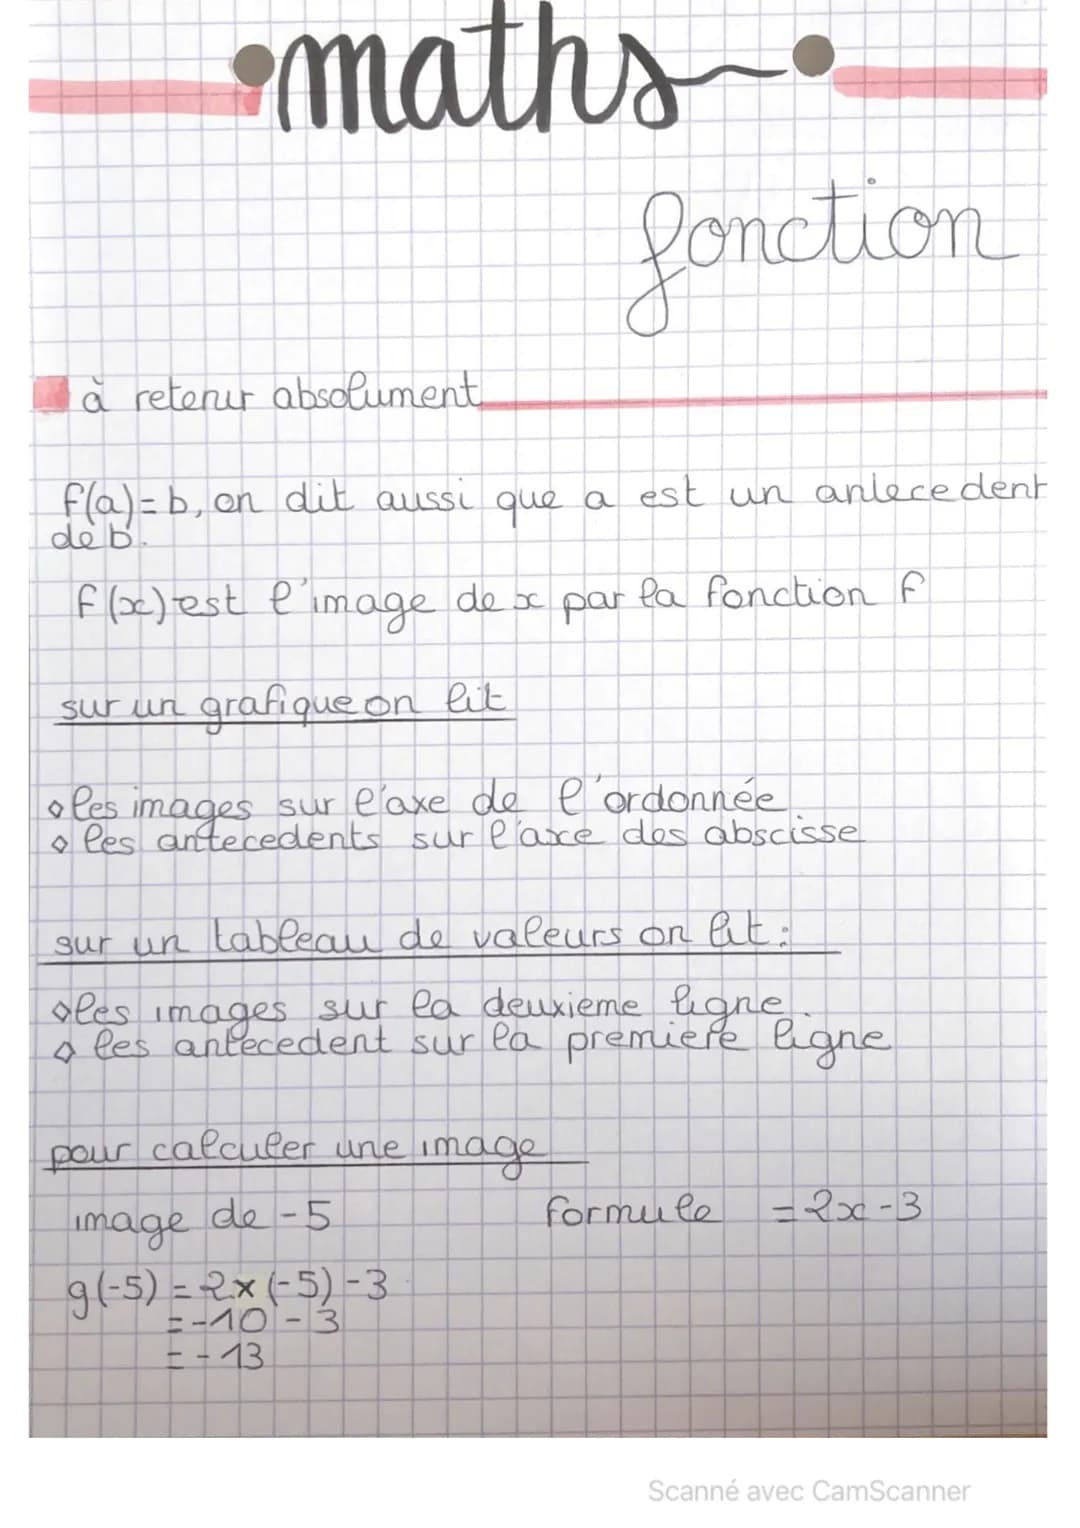 maths
fonction
à retenir absolument
f(a)=b, on dit aussi que a est un antecedent
de b.
f(x) est l'image de x par la fonction f
sur un grafique on lit
les images sur l'axe de l'ordonnée
les antecedents sur l'axe des abscisse
sur un tableau de valeurs on lit :
les images sur la deuxieme ligne.
les antecedent sur la premiere ligne
pour calculer une image
image de -5 formule =2x-3
g(-5) = 2x(-5)-3
=-10-3
=-13
Scanné avec CamScanner